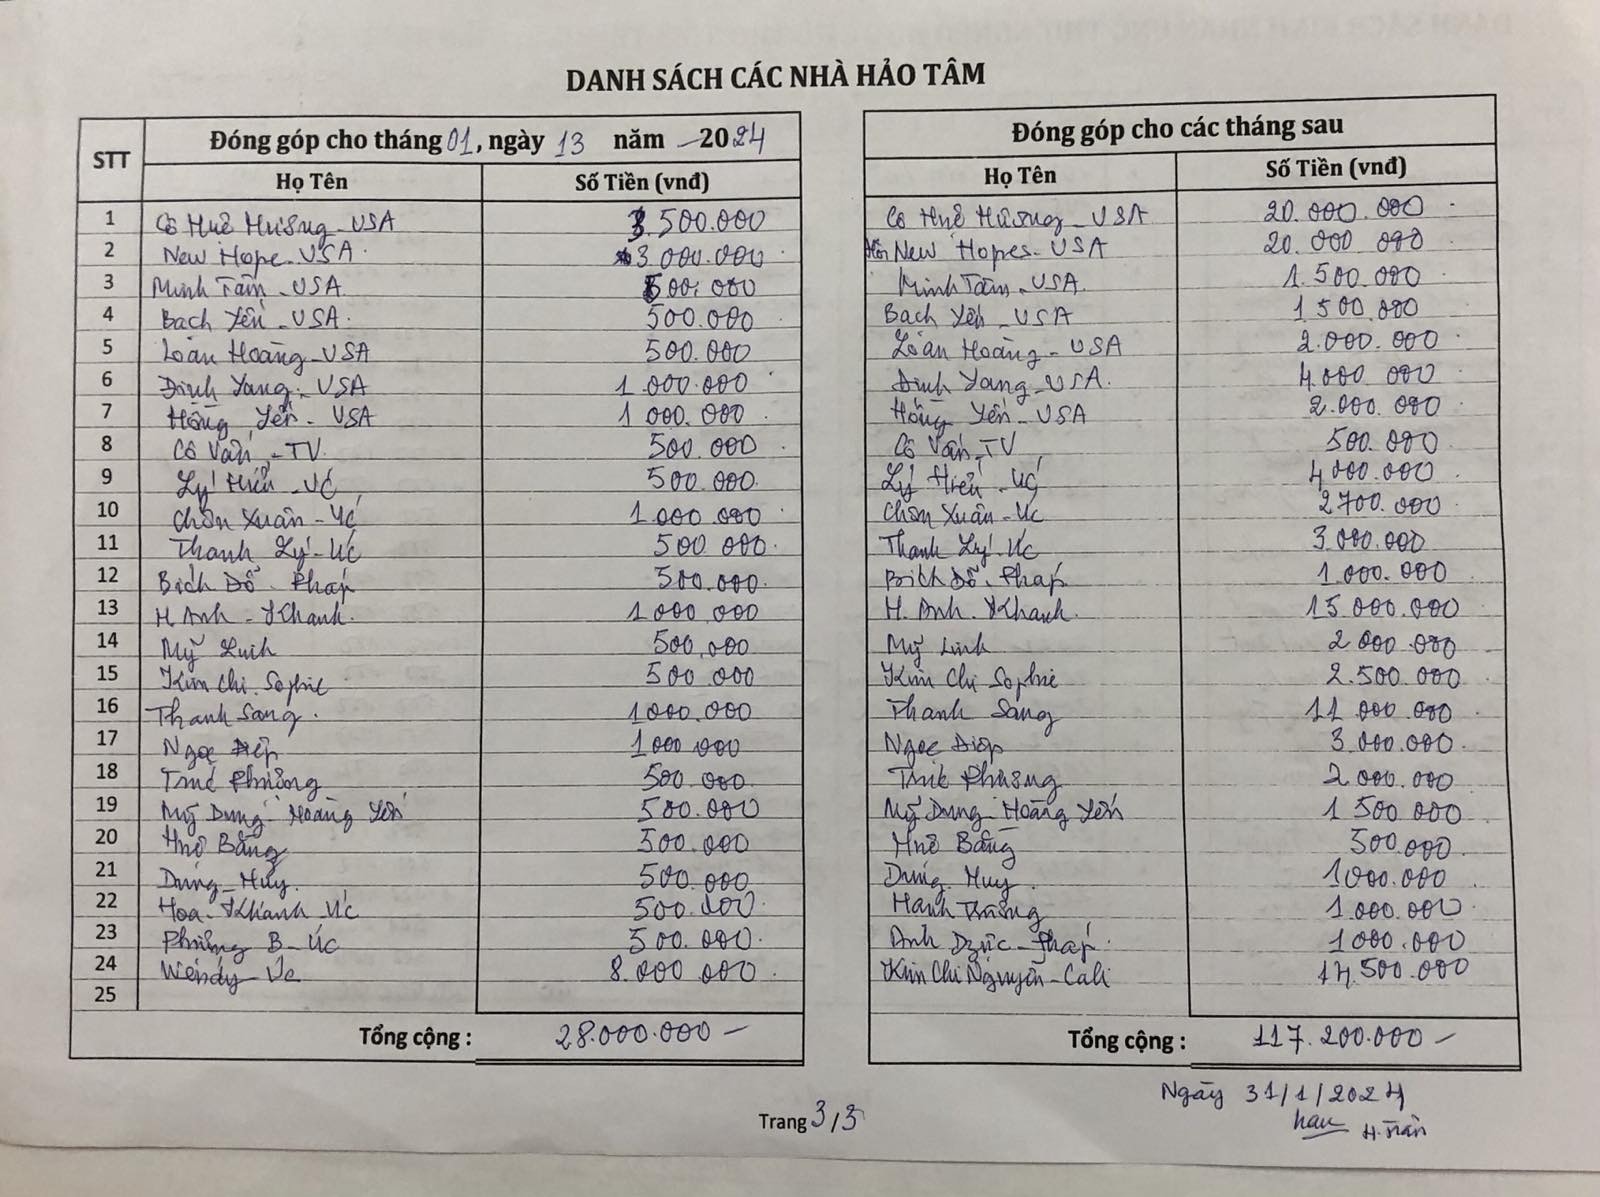 DANH SÁCH CÁC NHÀ HẢO TÂM
STT Đóng góp cho tháng 01, ngày 13 năm 2024
Họ Tên Số Tiền (vnđ)
1 Cô Huê Hương - USA 3.500.000
2 New Hope - USA. 3.000.000
3 Minh Tâm - USA 500.000
4 Bach Yến - USA. 500.000
5 Loan Hoàng - USA 500.000
6 Đinh Yang - USA 1.000.000
7 Hồng Yến - USA 1.000.000
8 Cô Vân - TV. 500.000
9 Lý Hiếu - ÚC 500.000
10 Chơn Xuân - Úc 1.000.000
11 Thanh Lý - Úc 500.000
12 Bích Đỗ - Pháp 500.000
13 H. Anh - Khanh. 1.000.000
14 Mỹ Linh 500.000
15 Kim Chi Sophie 500.000
16 Thanh Sang. 1.000.000
17 Ngọc Điệp 1.000.000
18 Trúc Phương 500.000
19 Mỹ Dung Hoàng Yến 500.000
20 Huê Bằng 500.000
21 Dung - Huy. 500.000
22 Hoa - Khánh - Úc 500.000
23 Phương B - Úc 500.000
24 Wendy - Úc 8.000.000
25
Tổng cộng : 28.000.000 -
Đóng góp cho các tháng sau
Họ Tên Số Tiền (vnđ)
Cô Huê Hương - USA 20.000.000
New Hopes - USA 20.000.000
Minh Tâm - USA 1.500.000
Bach Yến - USA 1.500.000
Loan Hoàng - USA 2.000.000
Đinh Yang - USA. 4.000.000
Hồng Yến - USA 2.000.000
Cô Vân - TV 500.000
Lý Hiếu - ÚC 4.000.000
Chơn Xuân - Úc 2.700.000
Thanh Lý - Úc 3.000.000
Bích Đỗ - Pháp 1.000.000
H. Anh. Khanh. 15.000.000
Mỹ Linh 2.000.000
Kim Chi Sophie 2.500.000
Thanh Sang 11.000.000
Ngọc Điệp 3.000.000
Trúc Phương 2.000.000
Mỹ Dung Hoàng Yến 1.500.000
Huê Bằng 500.000
Dung Huy. 1.000.000
Hanh Trương 1.000.000
Anh Dzực - Pháp. 1.000.000
Kim Chi Nguyễn - Cali 14.500.000
Tổng cộng : 117.200.000 -
Ngày 31/1/2024
H. Trần
Trang 3/3